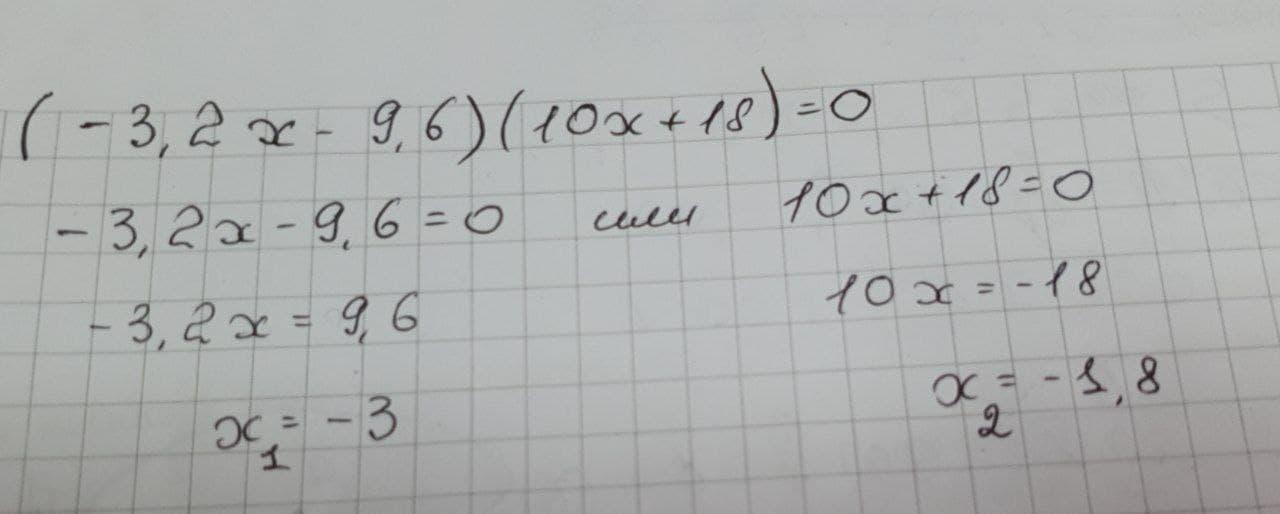 (-3,2x - 9,6)(10x+18)=0
-3,2x-9,6=0 или 10x+18=0
-3,2x=9,6 10x=-18
x₁=-3 x₂=-1,8